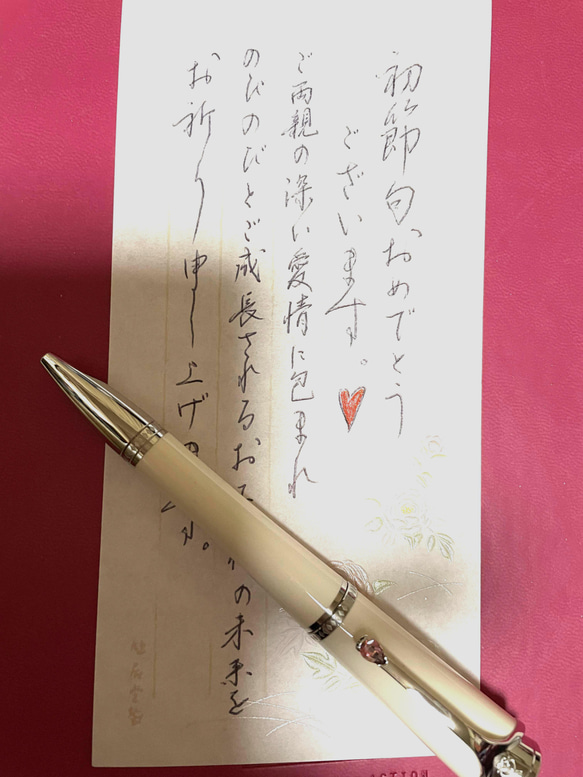 初節句、おめでとう
ございます。
ご両親の深い愛情に包まれ
のびのびとご成長されるお の未来を
お祈り申し上げ 。